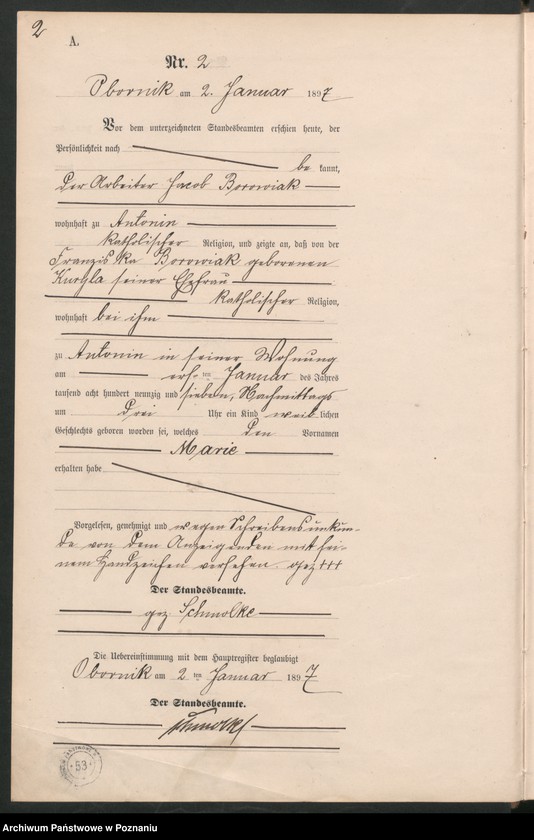 2
A.
Nr. 2
Obornik am 2. Januar 1897
Vor dem unterzeichneten Standesbeamten erschien heute, der
Persönlichkeit nach
be kannt,
der Arbeiter Jacob Borowiak
wohnhaft zu Antonin
katholischer Religion, und zeigte an, daß von der
Franziska Borowiak geborenen
seiner Ehefrau
katholischer Religion,
wohnhaft bei ihm
zu Antonin in seiner Wohnung
am ersten Januar des Jahres
tausend acht hundert neunzig und sieben, Nachmittags
um drei Uhr ein Kind weiblichen
Geschlechts geboren worden sei, welches den Vornamen
Marie
erhalten habe
Vorgelesen, genehmigt und wegen Schreibensunkun-
de von dem Anzeigenden mit sei-
nem Handzeichen versehen. gez +++
Der Standesbeamte.
gez. Schmolke
Die Uebereinstimmung mit dem Hauptregister beglaubigt
Obornik am 2 ten Januar 1897
Der Standesbeamte.
Schmolke
53
Archiwum Państwowe w Poznaniu